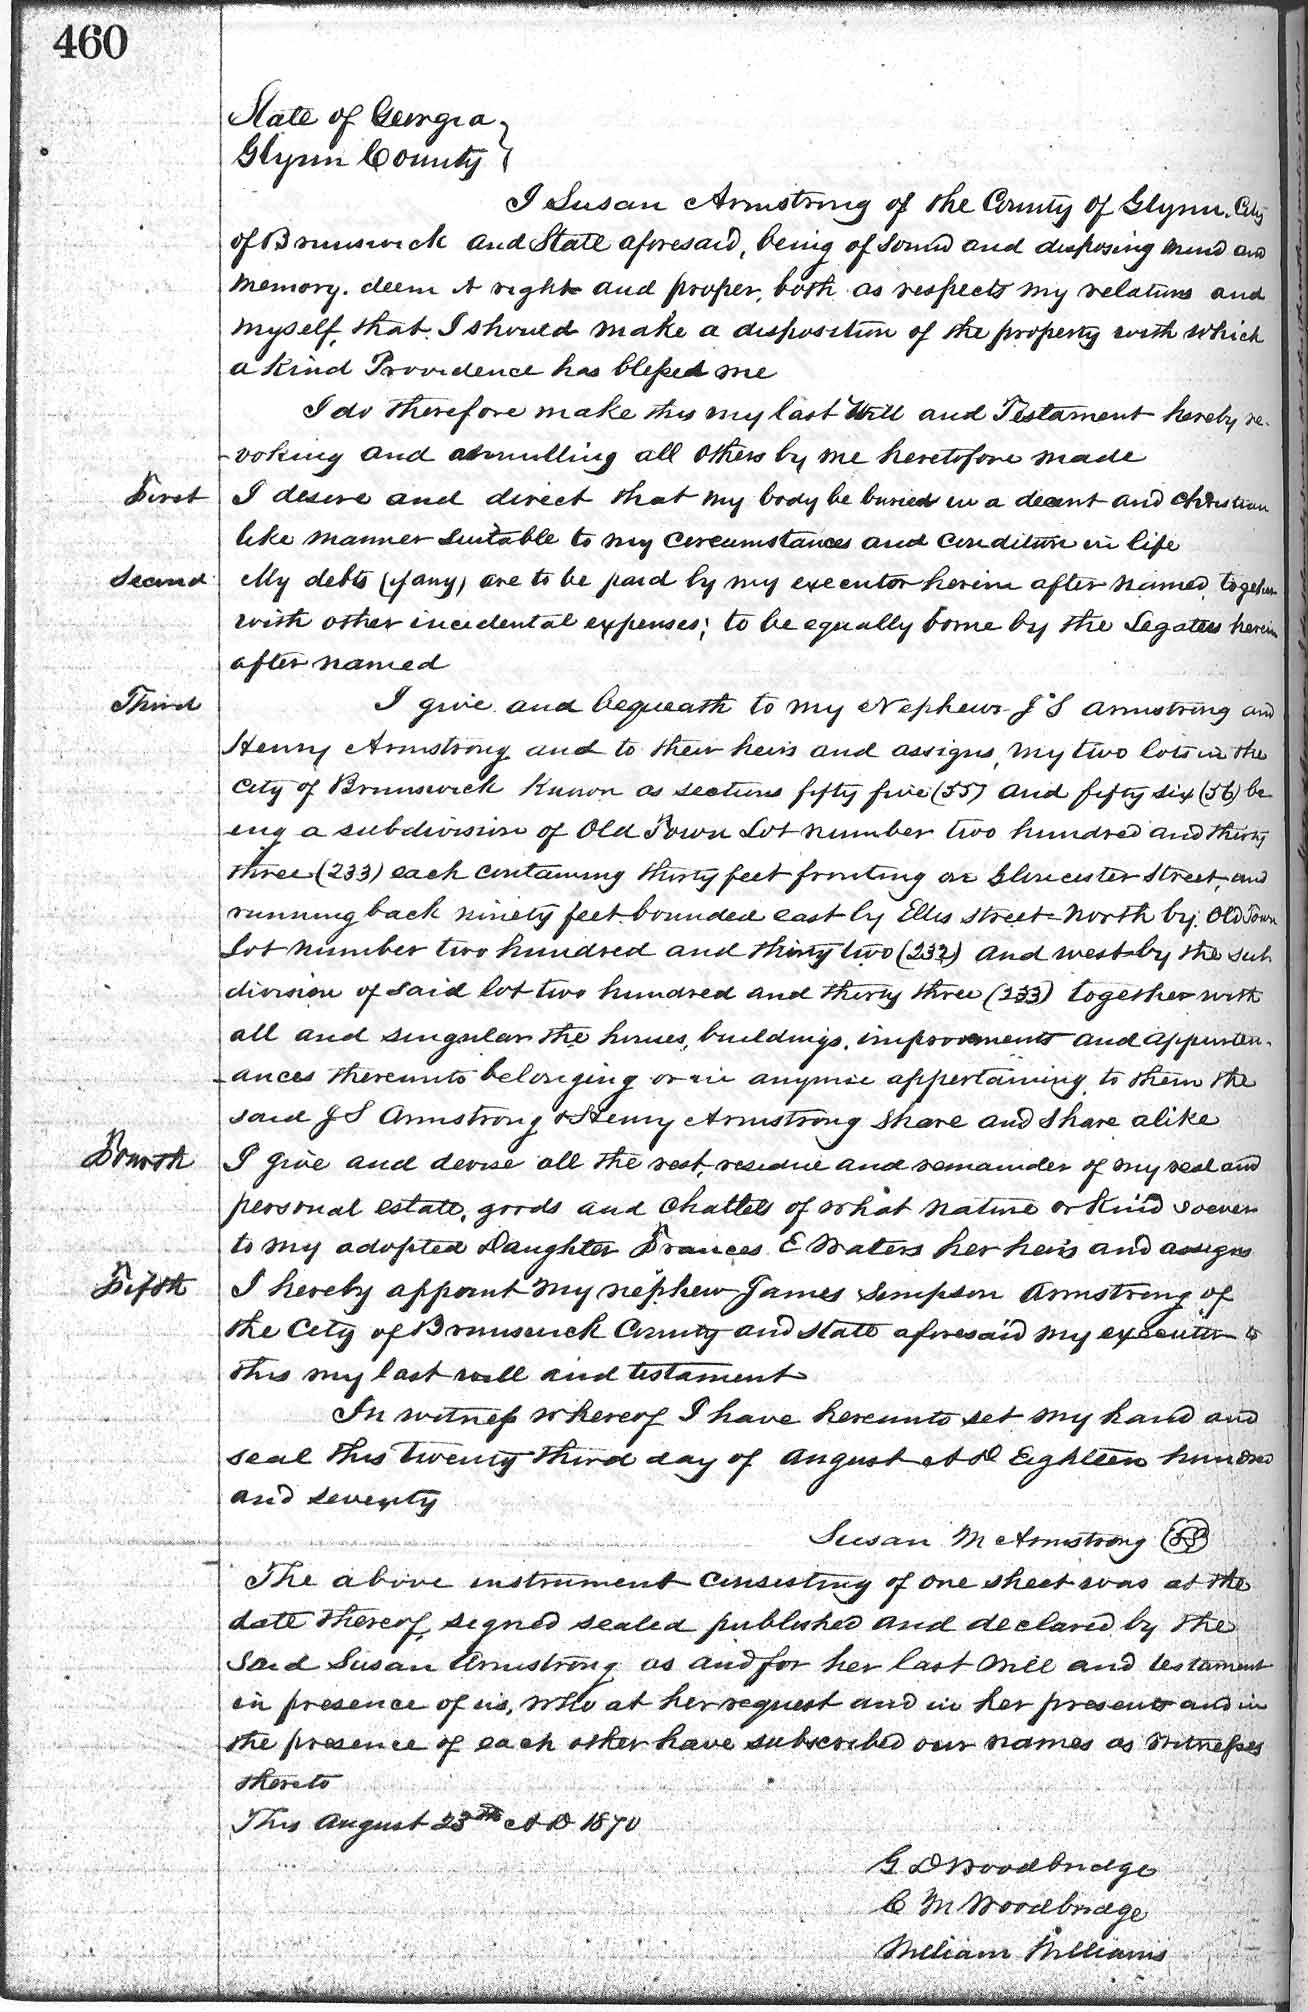 460
State of Georgia }
Glynn County }
I Susan Armstrong of the County of Glynn, City
of Brunswick and State aforesaid, being of sound and disposing mind and
memory. deem it right and proper, both as respects my relations and
myself, that I should make a disposition of the property with which
a kind Providence has blessed me
I do therefore make this my last Will and Testament hereby re-
-voking and annulling all others by me heretofore made
First I desire and direct that my body be buried in a decent and Christian
like manner suitable to my circumstances and condition in life
Second My debts (if any) are to be paid by my executor herein after named, together
with other incidental expenses; to be equally borne by the Legatees herein
after named
Third I give and bequeath to my Nephews J S Armstrong and
Henry Armstrong and to their heirs and assigns, my two lots in the
City of Brunswick known as sections fifty five (55) and fifty six (56) be
ing a subdivision of Old Town Lot number two hundred and thirty
three (233) each containing thirty feet fronting on Gloucester Street, and
running back ninety feet bounded east by Ellis street North by Old Town
Lot number two hundred and thirty two (232) and west by the sub-
division of said lot two hundred and thirty three (233) together with
all and singular the houses, buildings, improvements and appurten-
-ances thereunto belonging or in anywise appertaining to them the
said J S Armstrong & Henry Armstrong share and share alike
Fourth I give and devise all the rest, residue and remainder of my real and
personal estate, goods and chattels of what nature or kind soever
to my adopted Daughter Frances E Waters her heirs and assigns
Fifth I hereby appoint my nephew James Simpson Armstrong of
the City of Brunswick County and State aforesaid my executor to
this my last will and testament
In witness whereof I have hereunto set my hand and
seal this twenty third day of August A D Eighteen hundred
and seventy
Susan M Armstrong (LS)
The above instrument consisting of one sheet was at the
date thereof, signed sealed published and declared by the
said Susan Armstrong as and for her last Will and testament
in presence of us, who at her request and in her presents and in
the presence of each other have subscribed our names as witnesses
thereto
This August 23th A D 1870
G D Woodbridge
C M Woodbridge
William Williams